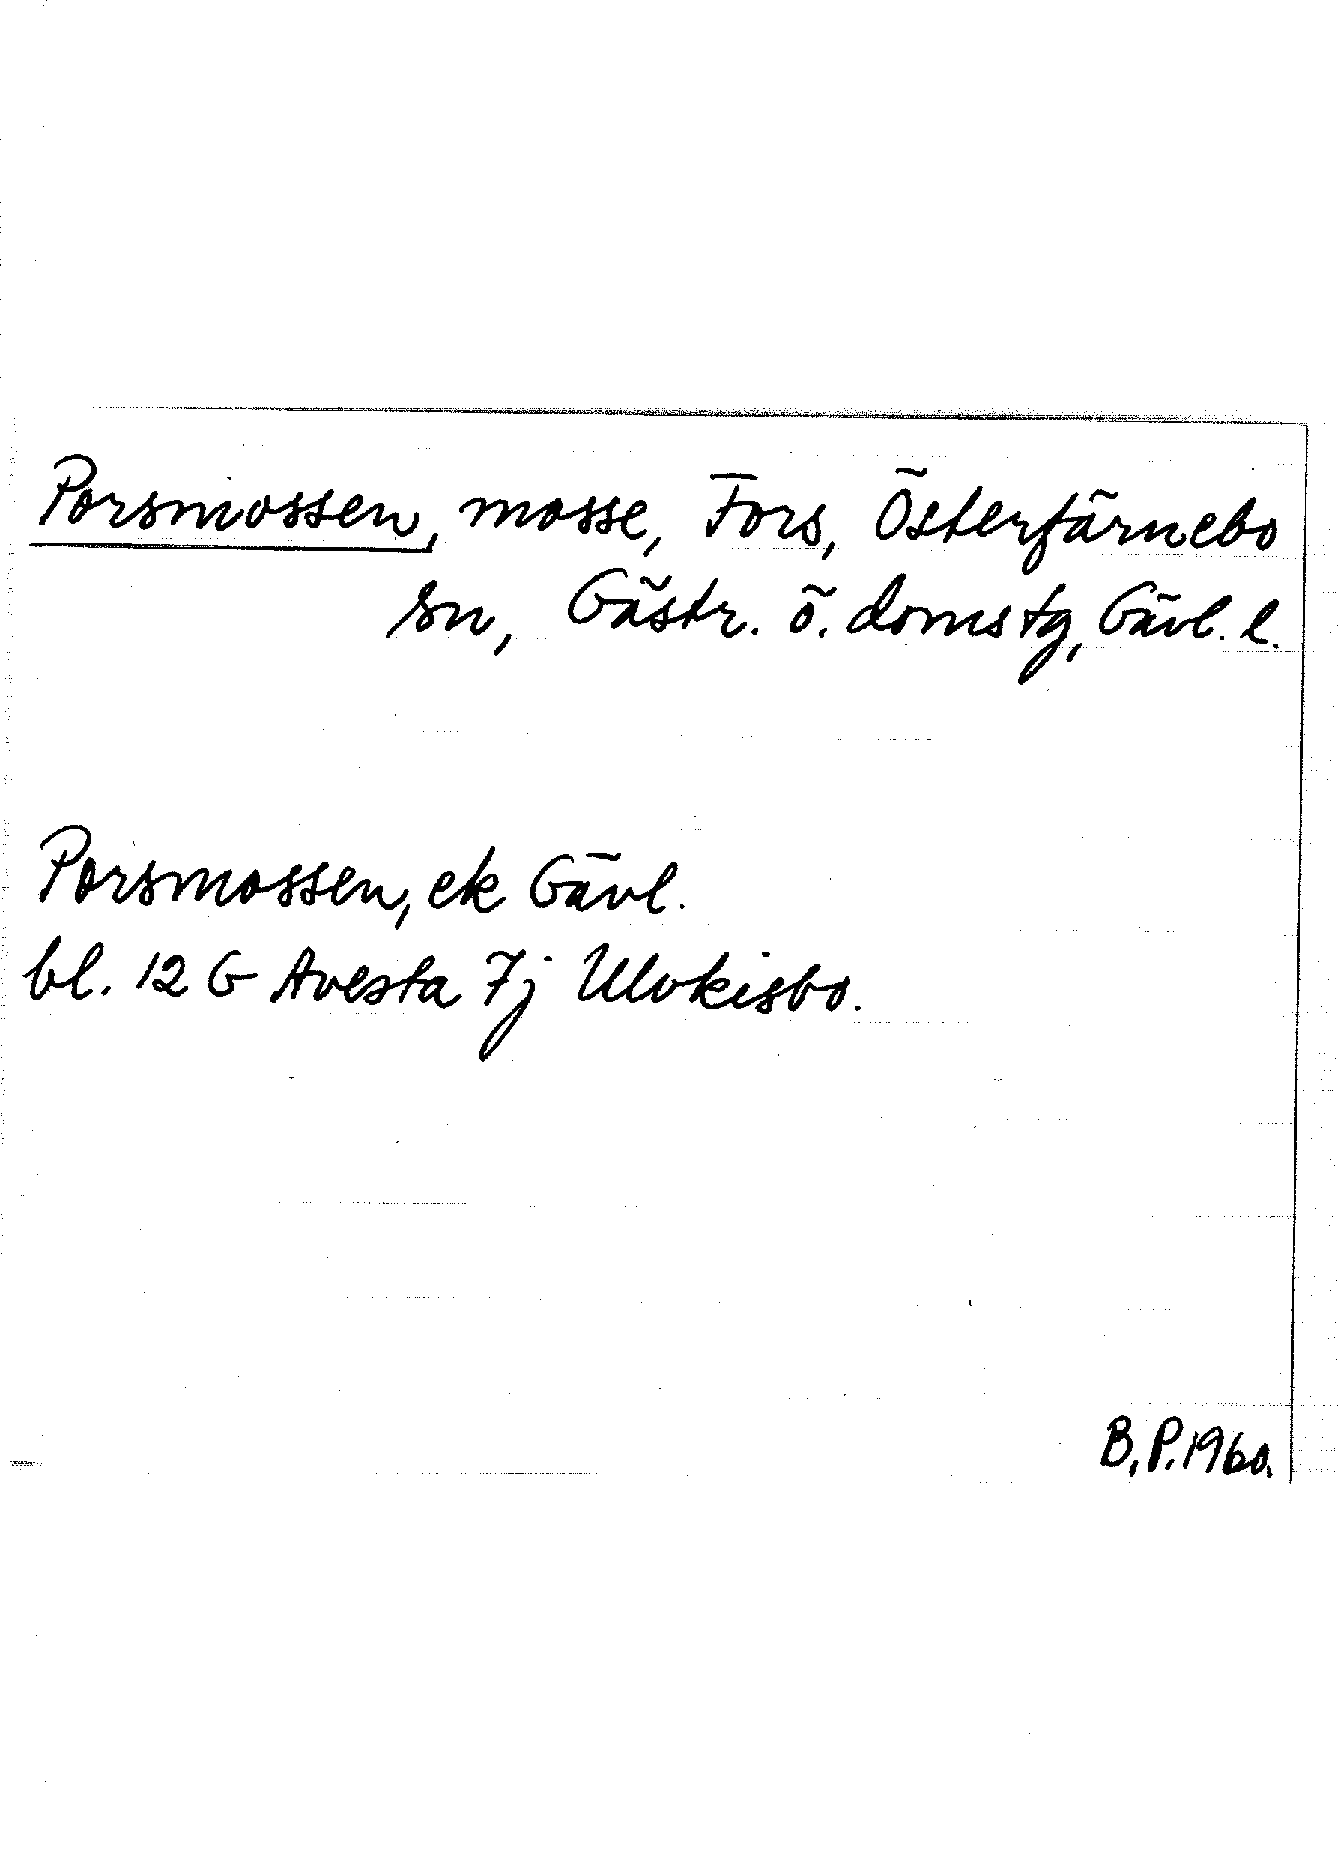 Porsmossen, mosse, Fors, Österfärnebo
sn, Gästr. ö. domstg, Gävl. l.
Porsmossen, ek Gävl.
bl. 12 G Avesta 7j Ulvkisbo.
B.P. 1960.